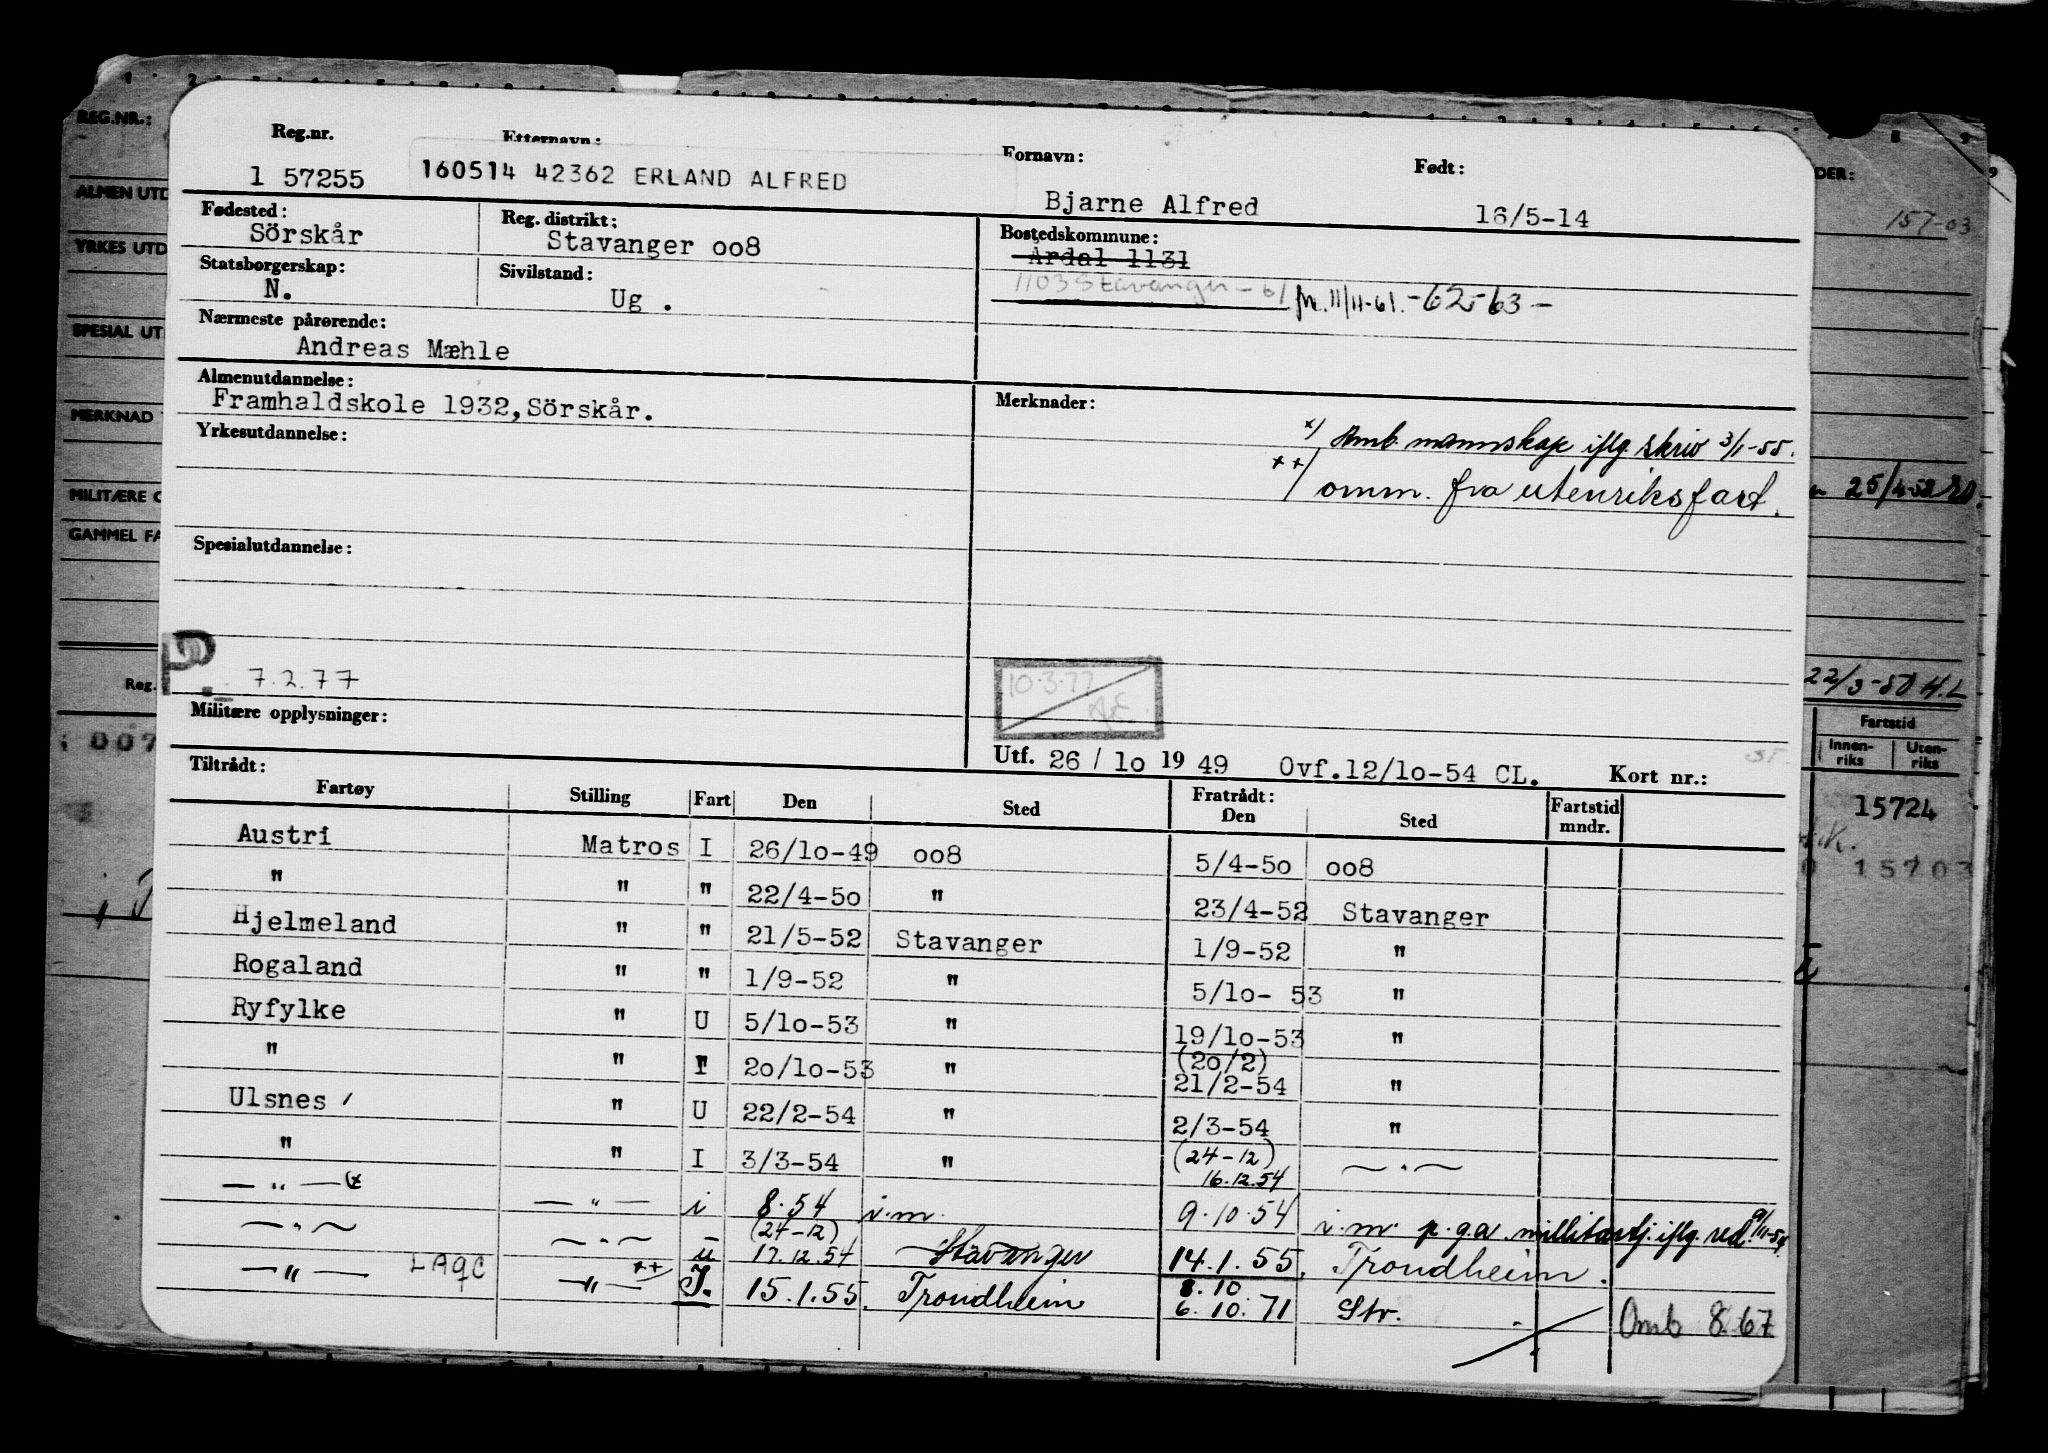 Reg.nr. Etternavn: Fornavn: Født:
1 57255 160514 42362 ERLAND ALFRED Bjarne Alfred 16/5-14
Fødested: Reg. distrikt: Bostedskommune:
Sörskår Stavanger oo8 Årdal 1131
Statsborgerskap: Sivilstand: 1103 Stavanger - 61 fr. 11/11-61. -62-63-
N. Ug .
Nærmeste pårørende:
Andreas Mæhle
Almenutdannelse: Merknader:
Framhaldskole 1932, Sörskår.
x) Omb. mannskap iflg. skriv 3/1-55.
Yrkesutdannelse:
++/ omm. fra utenriksfart.
Spesialutdannelse:
P. 7.2.77 10.3.77
Militære opplysninger:
Utf. 26 / lo 19 49 Ovf.12/lo-54 CL. Kort nr.:
Tiltrådt: Fratrådt:
Fartøy Stilling Fart Den Sted Den Sted Fartstid mndr.
Austri Matros I 26/lo-49 oo8 5/4-5o oo8
" " " 22/4-5o " 23/4-52 Stavanger
Hjelmeland " " 21/5-52 Stavanger 1/9-52 "
Rogaland " " 1/9-52 " 5/lo- 53 "
Ryfylke " U 5/lo-53 " 19/lo-53 "
(2o/2)
" " I 2o/lo-53 " 21/2-54 "
Ulsnes " U 22/2-54 " 2/3-54 "
" " I 3/3-54 " (24-12) 16.12.54 — " —
— " — — " — i 8.54 i.m. 9.10.54 i.m. p.g.a. millitærtj. iflg. red. 9/11-54
— " — — " — u (24-12) 17.12.54 Stavanger 14.1.55. Trondheim.
— " — LAQC — " — ++ I. 15.1.55. Trondheim 8.10 6.10.71 Str. Omb 8.67
REG.NR.:
ALMEN UTD
YRKES UTD
SPESIAL UT
MERKNAD
MILITÆRE O
GAMMEL FA
Reg.
007
DER:
157-03
25/4-52
22/3-50 H.L
Fartstid
Innen-riks Uten-riks
15724
15703